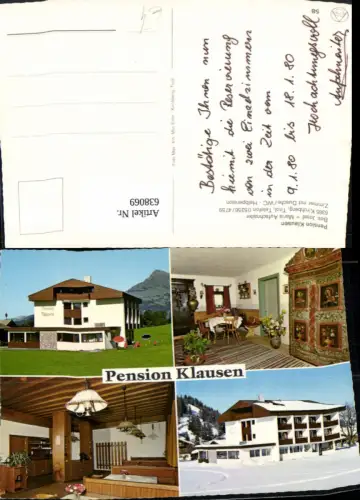 Bestätige Ihnen nun
hiermit die Reservierung
von zwei Einzelzimmern
in der Zeit vom
9.1.80 bis 18.1.80
Hochachtungsvoll
Pension Klausen
Bes. Josef + Maria Aufschnaiter
6365 Kirchberg, Tirol, Telefon
Zimmer mit Dusche / WC - Halbpension
Artikel Nr.
638069
Pension Klausen